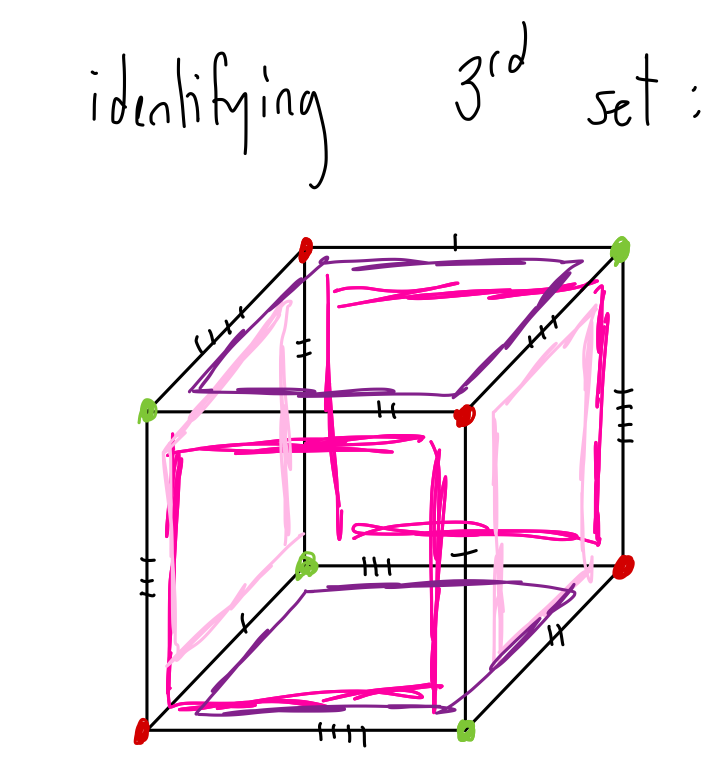 identifying 3rd set: